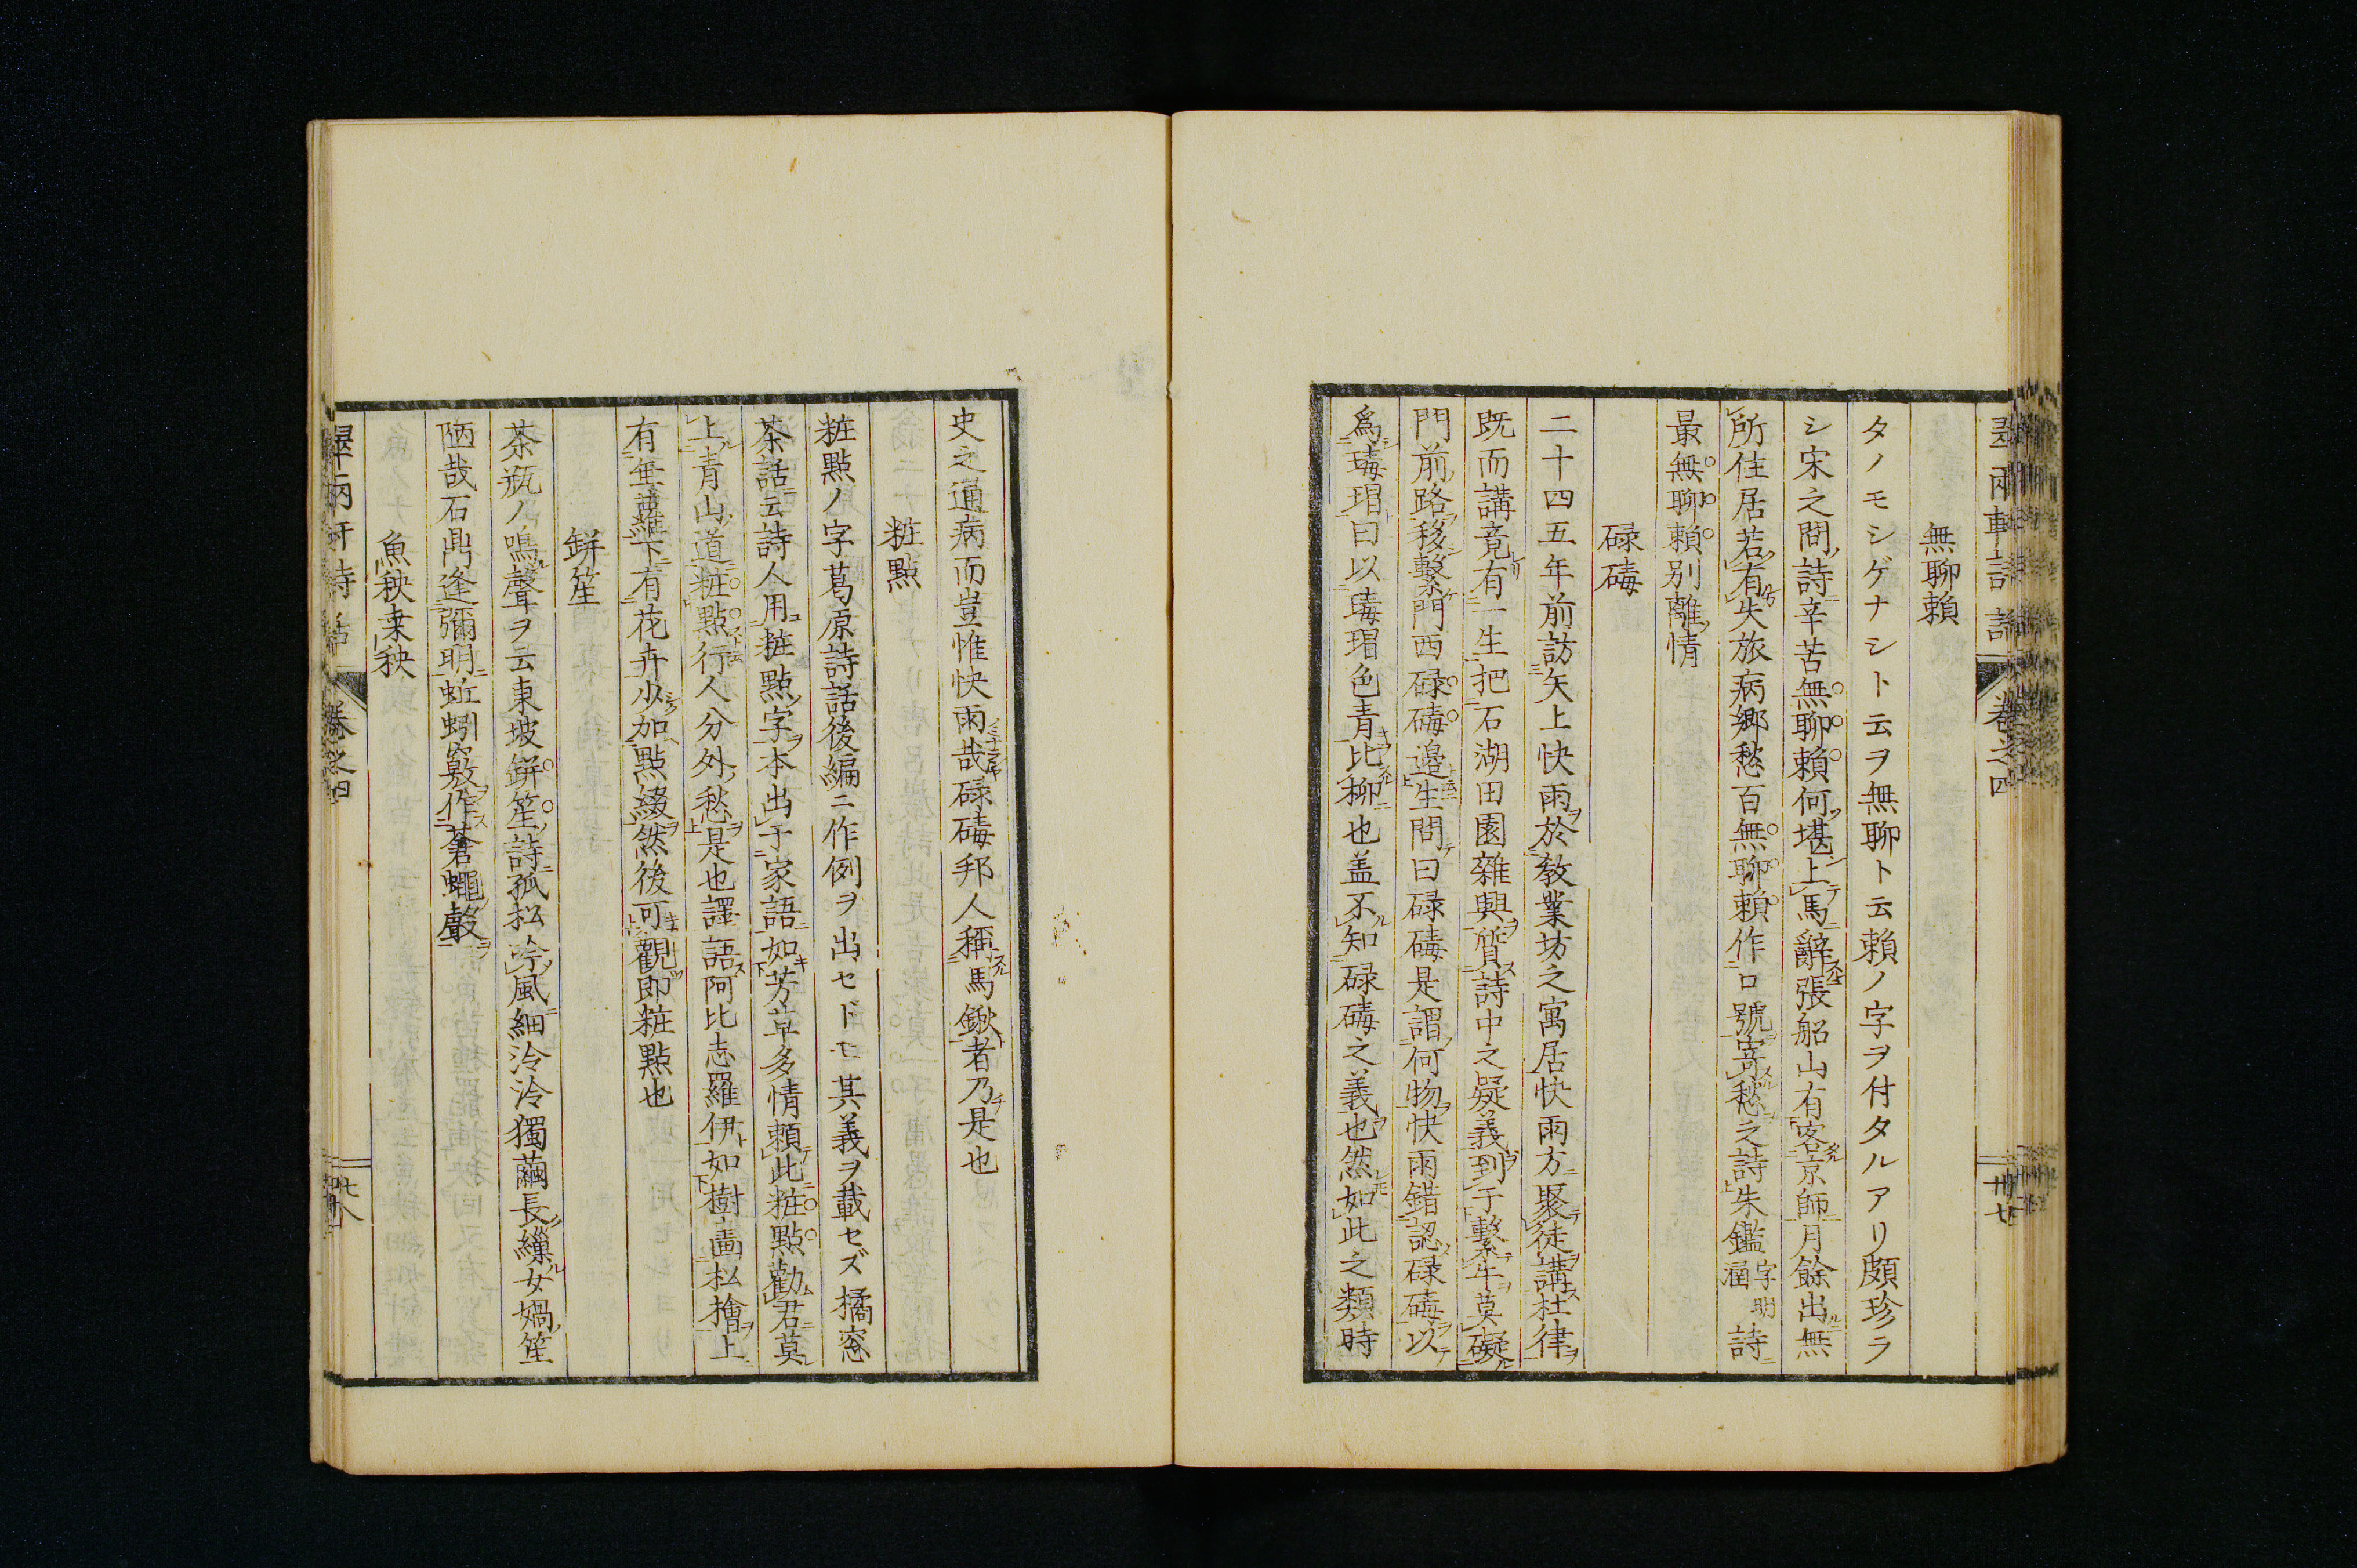 無聊賴
タノモシゲナシト云ヲ無聊ト云賴ノ字ヲ付タルアリ頗珍ラ
シ宋之問詩辛苦無聊賴何堪上馬辭張船山有客京師月餘出無
所住居若有失旅病郷愁百無聊賴作口號寄愁之詩朱鑑字明涵詩
最無聊賴別離情
碌碡
二十四五年前訪矢上快雨於教業坊之寓居快雨方聚徒講杜律
既而講竟有一生把石湖田園雜興質詩中之疑義到于繫牛莫礙
門前路移繫門西碌碡邊生問曰碌碡是謂何物快雨錯認碌碡以
爲瑇瑁曰以瑇瑁色青比柳也盖不知碌碡之義也然如此之類時
史之通病而豈惟快雨哉碌碡邦人稱馬鍬者乃是也
粧點
粧點ノ字葛原詩話後編ニ作例ヲ出セドモ其義ヲ載セズ橘窓
茶話云詩人用粧點字本出于家語如芳草多情頼此粧點勸君莫
上青山道粧點行人分外愁是也譯語阿比志羅伊如樹画松檜上
有垂蘿下有花卉少加點綴然後可觀即粧點也
缾笙
茶瓶ノ鳴聲ヲ云東坡缾笙詩孤松吟風細泠泠獨繭長繰女媧笙
陋哉石鼎逢彌明蚯蚓竅作蒼蠅聲
魚秧棄秧
卷之四
卅七